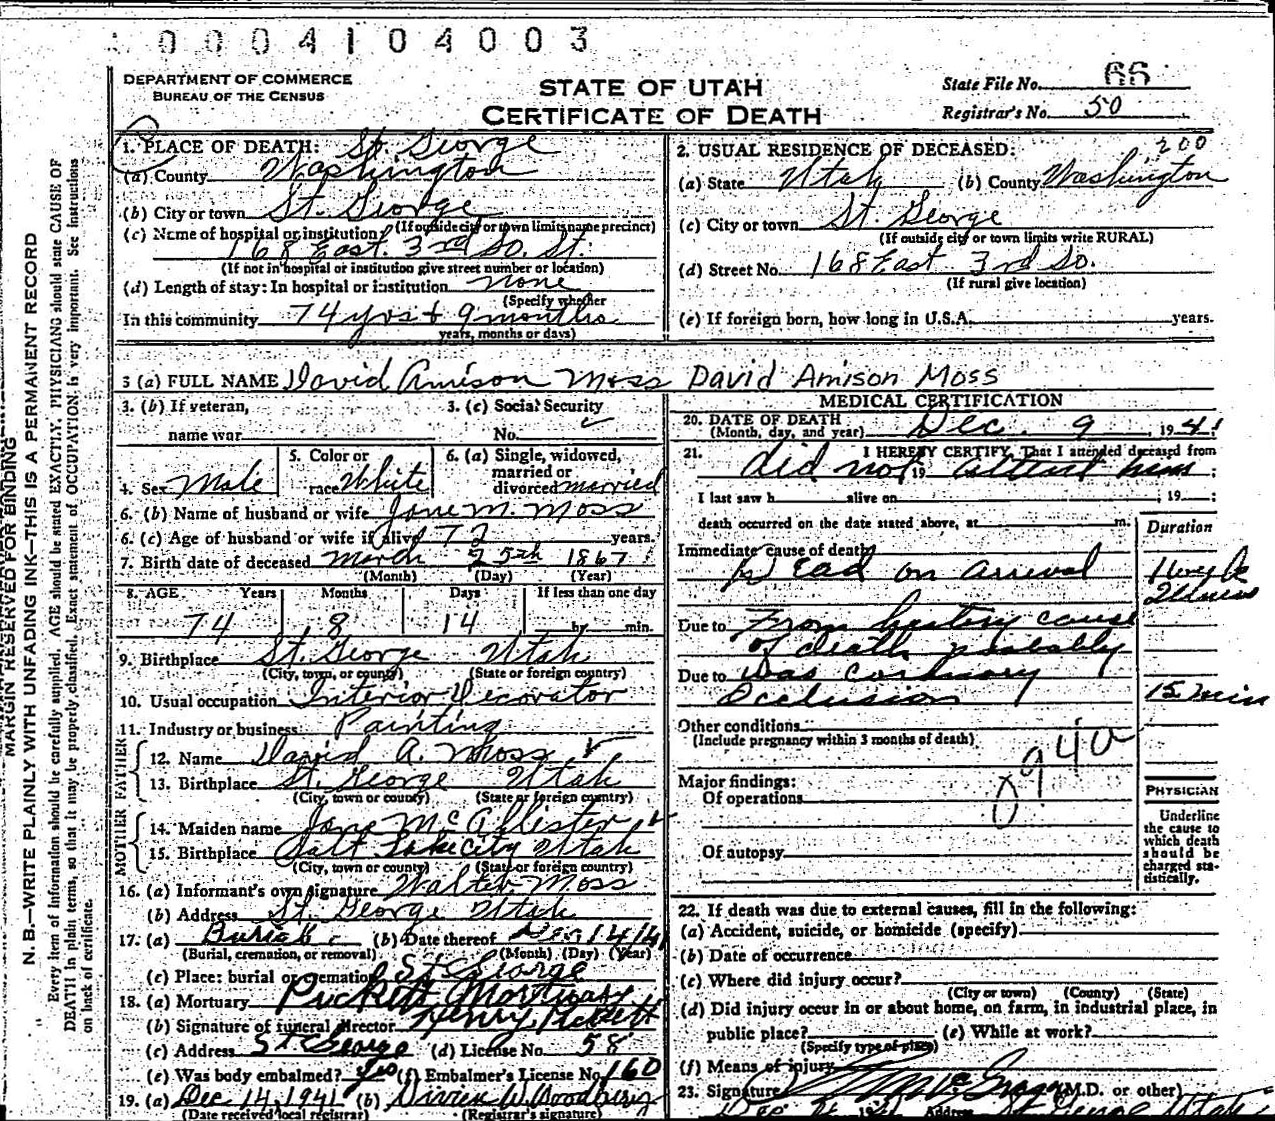 0004104003
DEPARTMENT OF COMMERCE
BUREAU OF THE CENSUS
STATE OF UTAH
CERTIFICATE OF DEATH
State File No. 66
Registrar's No. 50
MARGIN RESERVED FOR BINDING
N. B.—WRITE PLAINLY WITH UNFADING INK—THIS IS A PERMANENT RECORD
Every item of information should be carefully supplied. AGE should be stated EXACTLY. PHYSICIANS should state CAUSE OF
DEATH in plain terms, so that it may be properly classified. Exact statement of OCCUPATION is very important. See Instructions
on back of certificate.
1. PLACE OF DEATH: St. George
(a) County Washington
(b) City or town St. George
(If outside city or town limits name precinct)
(c) Name of hospital or institution
168 East. 3rd So. St.
(If not in hospital or institution give street number or location)
(d) Length of stay: In hospital or institution none
(Specify whether
In this community 74 yrs + 9 months
years, months or days)
2. USUAL RESIDENCE OF DECEASED: 200
(a) State Utah (b) County Washington
(c) City or town St. George
(If outside city or town limits write RURAL)
(d) Street No. 168 East 3rd So.
(If rural give location)
(e) If foreign born, how long in U.S.A. years.
3 (a) FULL NAME David Amison Moss David Amison Moss
3. (b) If veteran,
name war
3. (c) Social Security
No.
4. Sex Male
5. Color or
race White
6. (a) Single, widowed,
married or
divorced married
6. (b) Name of husband or wife Jane M. Moss
6. (c) Age of husband or wife if alive 72 years.
7. Birth date of deceased March 25th 1867
(Month) (Day) (Year)
8. AGE Years Months Days If less than one day
74 8 14 hr. min.
9. Birthplace St. George Utah
(City, town, or county) (State or foreign country)
10. Usual occupation Interior Decorator
11. Industry or business Painting
FATHER
12. Name David A. Moss
13. Birthplace St. George Utah
(City, town or county) (State or foreign country)
MOTHER
14. Maiden name Jane McAllister
15. Birthplace Salt Lake City Utah
(City, town or county) (State or foreign country)
16. (a) Informant's own signature Walter Moss
(b) Address St. George Utah
17. (a) Burial (b) Date thereof Dec 14 / 41
(Burial, cremation, or removal) (Month) (Day) (Year)
(c) Place: burial or cremation St George
18. (a) Mortuary Pickett Mortuary
(b) Signature of funeral director Henry Pickett
(c) Address St George (d) License No. 58
(e) Was body embalmed? Yes (f) Embalmer's License No. 160
19. (a) Dec 14, 1941 (b) W. Woodbury
(Date received local registrar) (Registrar's signature)
MEDICAL CERTIFICATION
20. DATE OF DEATH
(Month, day, and year) Dec. 9, 1941
21. I HEREBY CERTIFY, That I attended deceased from
did not 19 attend him ;
I last saw h alive on , 19 ;
death occurred on the date stated above, at m.
Duration
Immediate cause of death
Dead on arrival
Due to From history cause
of death probably
Due to was coronary
occlusion 15 min
Other conditions
(Include pregnancy within 3 months of death)
094a
Major findings:
Of operations
Of autopsy
PHYSICIAN
Underline
the cause to
which death
should be
charged sta-
tistically.
22. If death was due to external causes, fill in the following:
(a) Accident, suicide, or homicide (specify)
(b) Date of occurrence
(c) Where did injury occur?
(City or town) (County) (State)
(d) Did injury occur in or about home, on farm, in industrial place, in
public place? (e) While at work?
(Specify type of place)
(f) Means of injury
23. Signature McGregor (M.D. or other)
Dec Address St George Utah